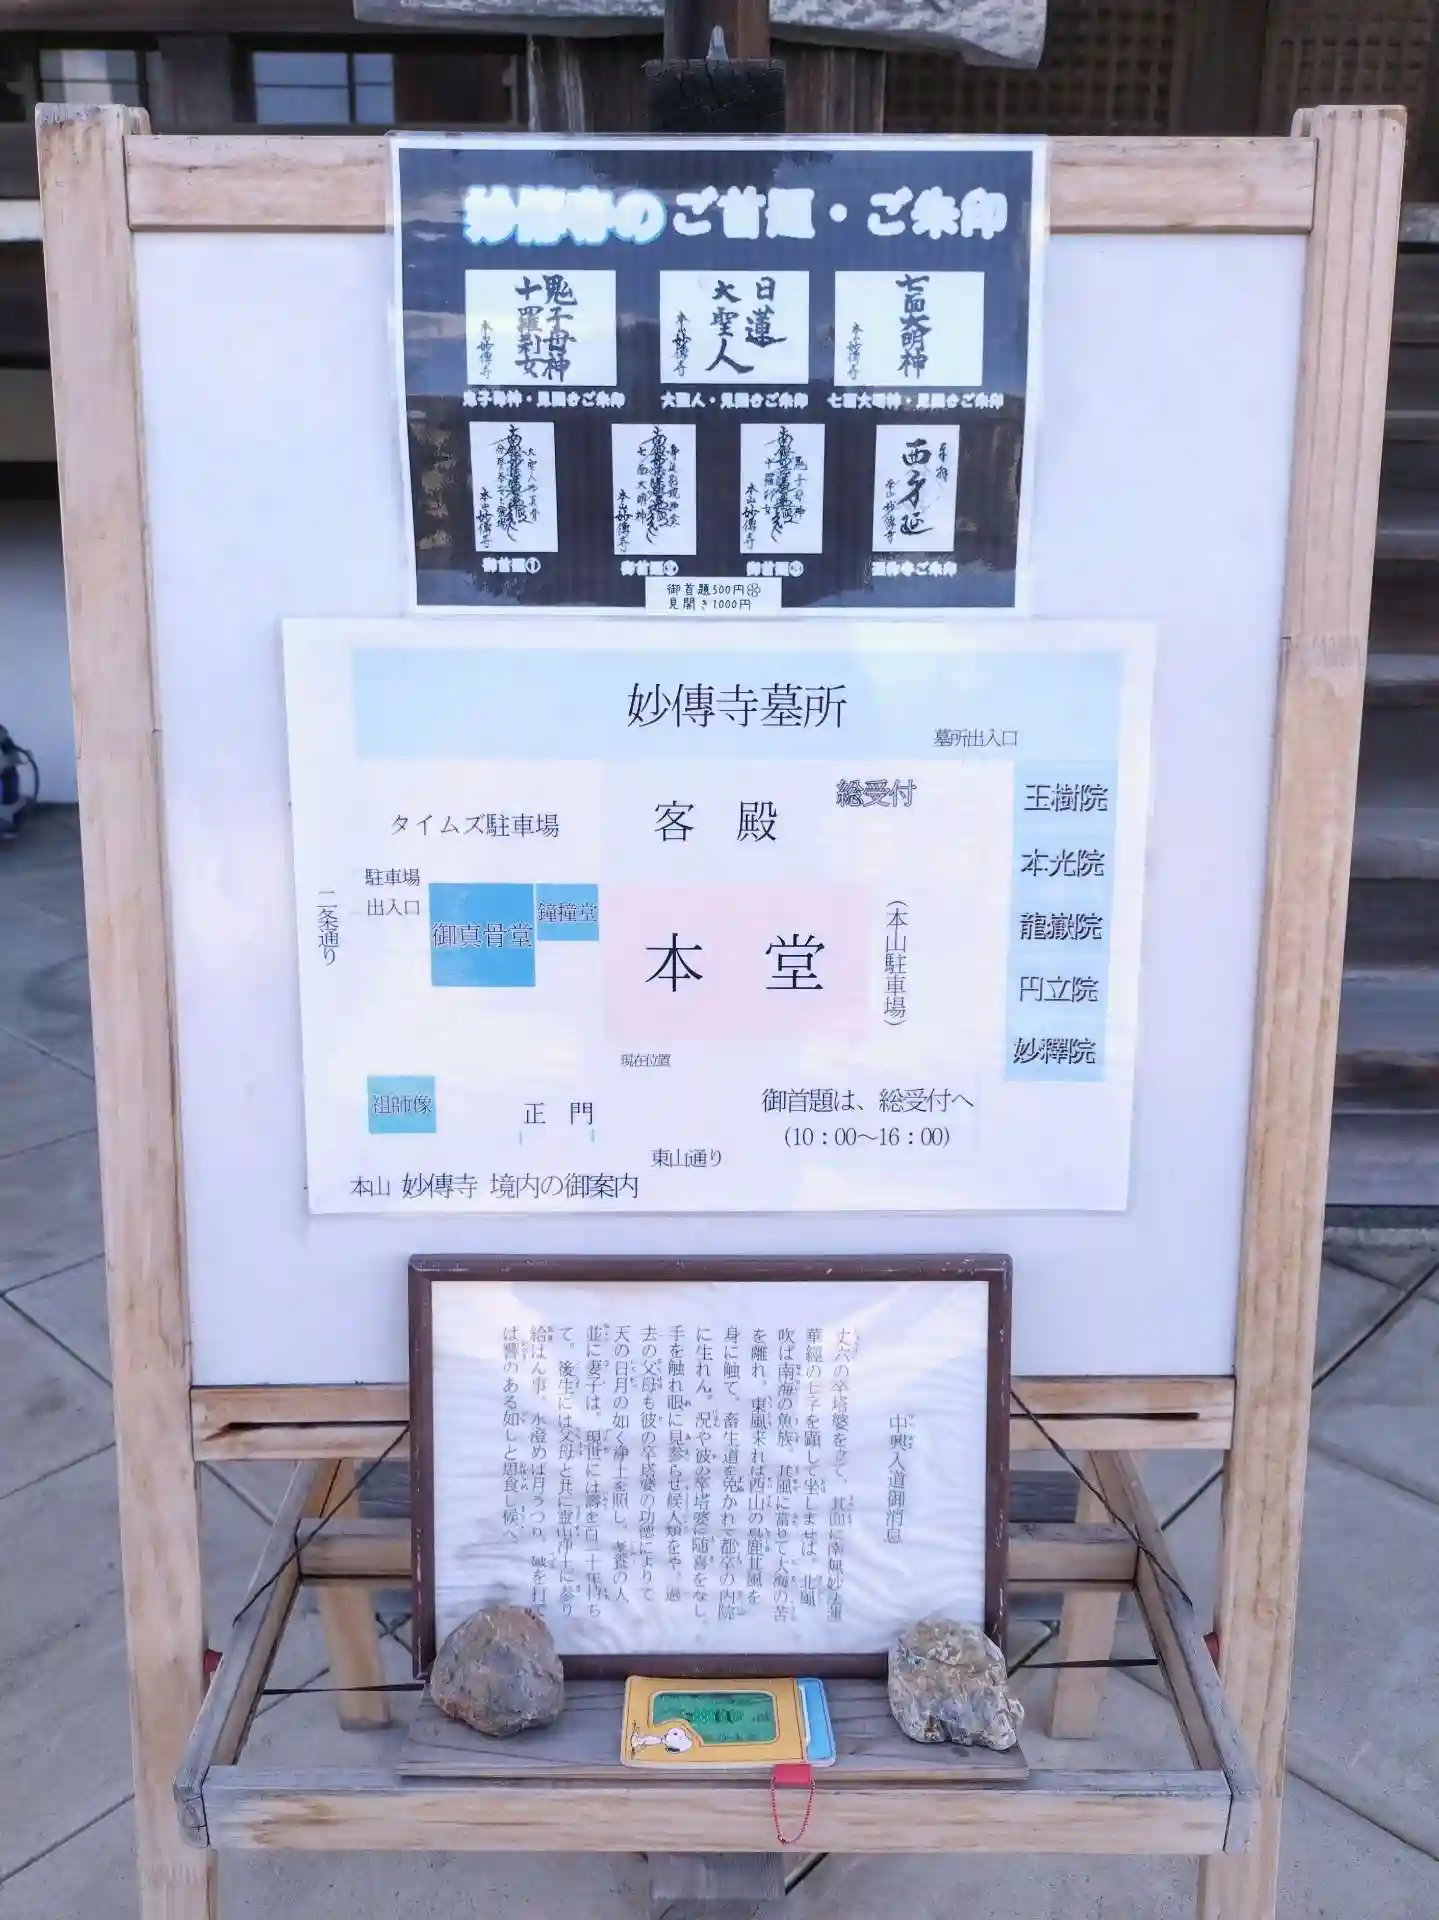 妙傳寺のご首題・ご朱印
鬼子母神
十羅刹女
本山妙傳寺
日蓮
大聖人
本山妙傳寺
七面大明神
本山妙傳寺
鬼子母神・見開きご朱印
大聖人・見開きご朱印
七面大明神・見開きご朱印
本山妙傳寺
七面大明神
本山妙傳寺
鬼子母神
十羅刹女
本山妙傳寺
奉拝
西身延
本山妙傳寺
御首題①
御首題②
御首題③
御首題500円
見開き1000円
妙傳寺墓所
墓所出入口
総受付
客殿
タイムズ駐車場
玉樹院
本光院
龍嶽院
円立院
妙釋院
駐車場
出入口
二条通り
御真骨堂
鐘撞堂
本堂
(本山駐車場)
現在位置
祖師像
正門
御首題は、総受付へ
(10:00〜16:00)
東山通り
本山 妙傳寺 境内の御案内
中興入道御消息
丈六の卒塔婆を立て、其面に南無妙法蓮
華經の七字を顕して坐しませば、北風
吹ば南海の魚族、其風に當りて大海の苦
を離れ、東風来れば西山の鳥鹿其風を
身に触て、畜生道を免かれて都卒の内院
に生れん。況や彼の卒塔婆に随喜をなし、
手を触れ眼に見参らせ候人類をや。過
去の父母も彼の卒塔婆の功徳によりて
天の日月の如く浄土を照し、孝養の人
並に妻子は、現世には壽を百二十年持ち
て、後生には父母と共に霊山浄土に参り
給はん事、水澄めば月うつり、鼓を打て
ば響のある如しと思食し候へ、